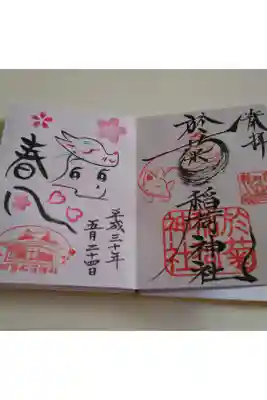 奉拝
於菊稲荷神社
於菊
神社
春
平成三十年
五月二十四日